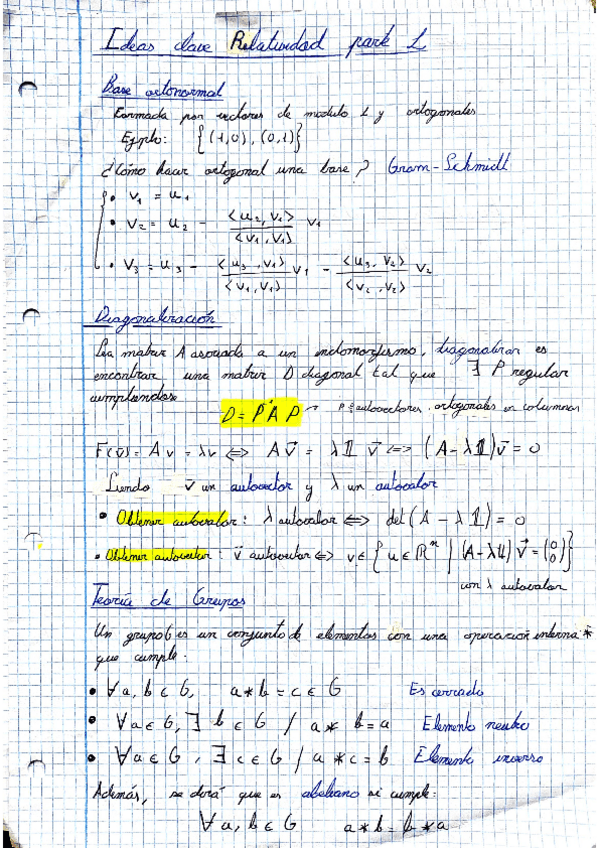 Ideas clave Relatividad parte 1
Base ortonormal
Formada por vectores de modulo 1 y ortogonales
Ejmplo: {(1,0), (0,1)}
¿Cómo hacer ortogonal una base? Gram-Schmidt
• v₁ = u₁
• v₂ = u₂ - <u₂, v₁> / <v₁, v₁> v₁
• v₃ = u₃ - <u₃, v₁> / <v₁, v₁> v₁ - <u₃, v₂> / <v₂, v₂> v₂
Diagonalización
Sea matriz A asociada a un endomorfismo, diagonalizar es
encontrar una matriz D diagonal tal que ∃ P regular
cumpliendose
D = P⁻¹ A P → P ≡ autovectores ortogonales en columnas
F(v⃗) = A v = λv ⟺ A v⃗ = λ𝟙 v⃗ ⟺ (A - λ𝟙)v⃗ = 0
Siendo v⃗ un autovector y λ un autovalor
• Obtener autovalor: λ autovalor ⟺ det(A - λ𝟙) = 0
• Obtener autovector: v⃗ autovector ⟺ v ∈ {u ∈ ℝⁿ | (A - λ𝟙) v⃗ = (0 0)}
con λ autovalor
Teoría de Grupos
Un grupo G es un conjunto de elementos con una operación interna *
que cumple:
• ∀ a, b ∈ G, a * b = c ∈ G Es cerrado
• ∀ a ∈ G, ∃ b ∈ G / a * b = a Elemento neutro
• ∀ a ∈ G, ∃ c ∈ G / a * c = b Elemento inverso
Además, se dirá que es abeliano si cumple:
∀ a, b ∈ G a * b = b * a